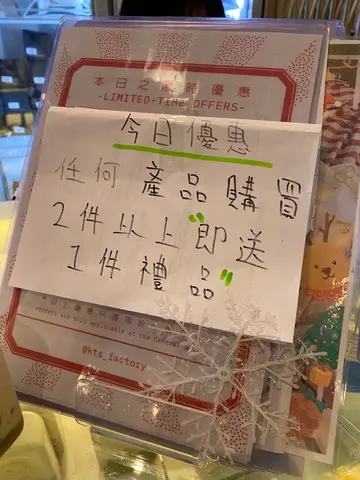 本日之限時優惠
-LIMITED-TIME OFFERS-
今日優惠
任何產品購買
2件以上"即送
1件禮品"
@kts_factory